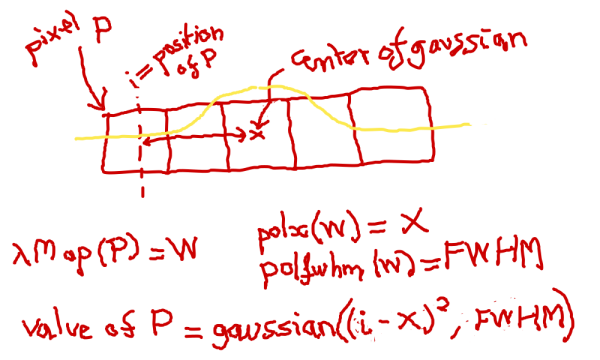 pixel P
i = position
of P
center of gaussian
x
λMap(P) = W
polx(W) = X
polfwhm(W) = FWHM
value of P = gaussian((i - x)², FWHM)